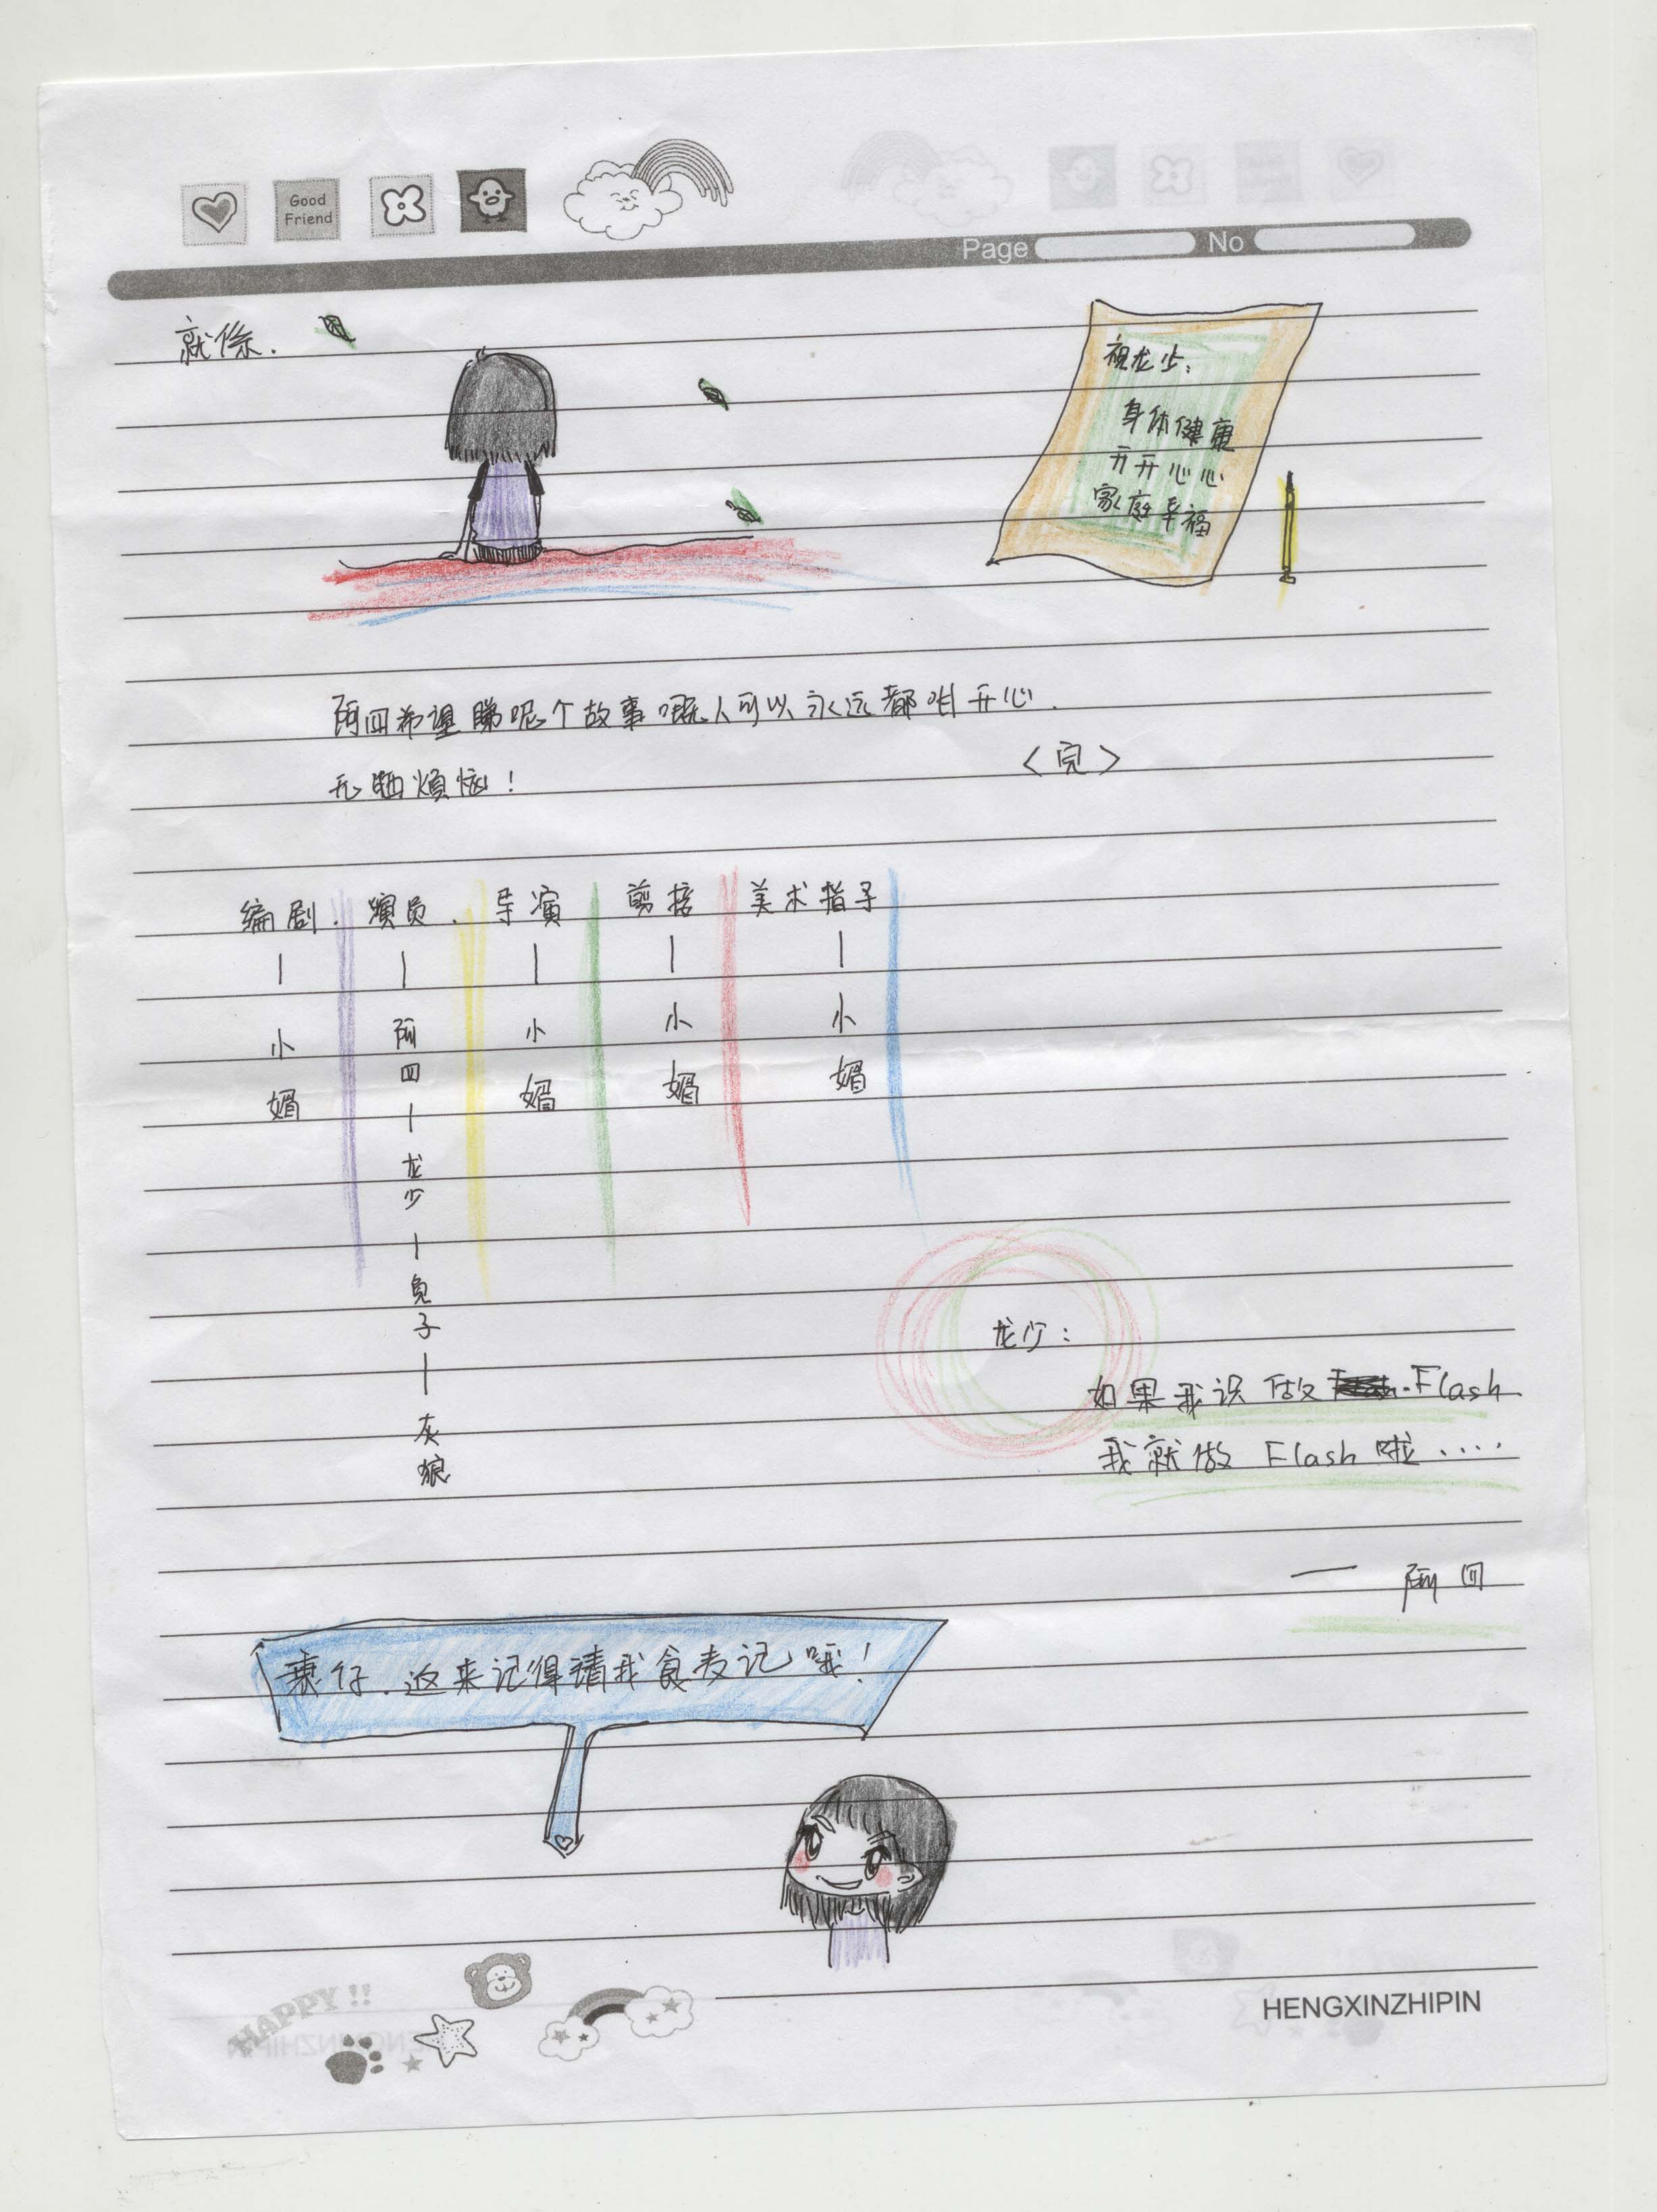 Good
Friend
Page No
就係.
祝龙少:
身体健康
开开心心
家庭幸福
阿四希望睇呢个故事嘅人可以永远都咁开心.
无晒烦恼!
〈完〉
编剧. 演员. 导演 剪接 美术指导
小媚
阿四
龙少
兔子
灰狼
小媚
小媚
小媚
龙少:
如果我识做 Flash
我就做 Flash 啦....
— 阿四
仔.返来记得请我食麦记哦!
HAPPY!!
HENGXINZHIPIN